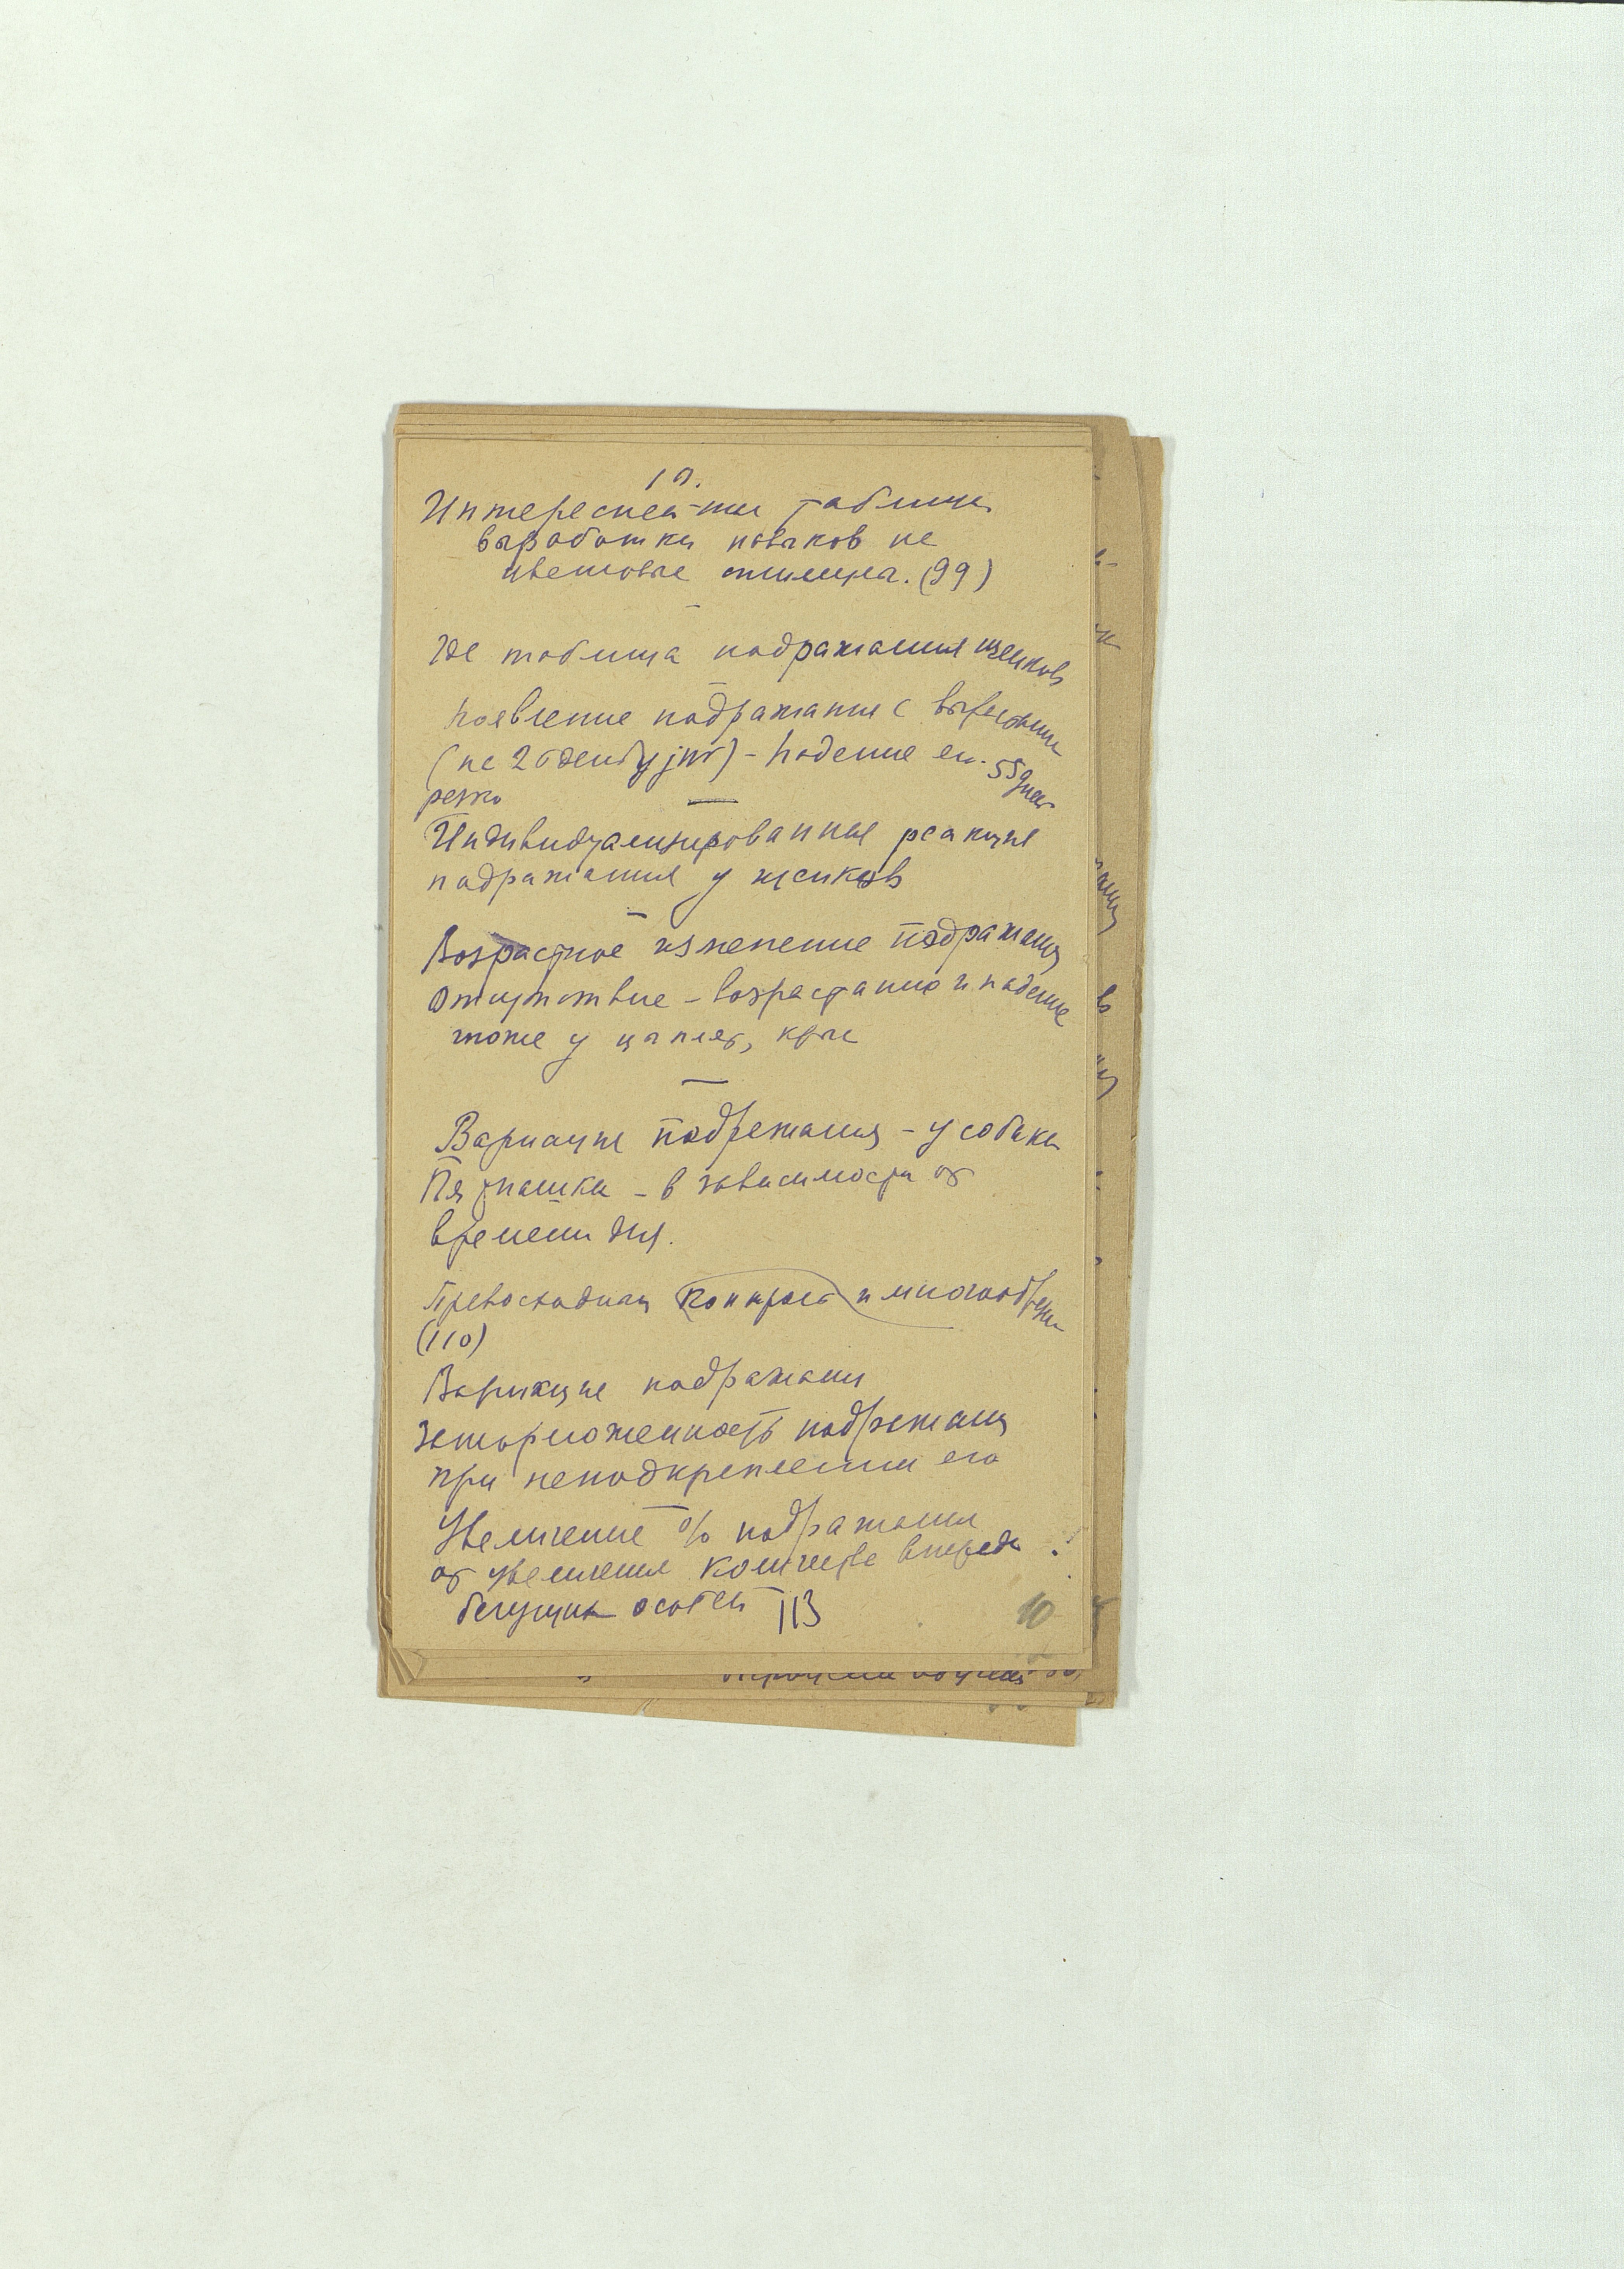 10.
Интересней-шие таблицы
выработки навыков на
цветовые стимулы. (99)
Где таблица подражания щенков
Появление подражания с
(на 20 день) - Падение 55 дней
резко
Индивидуализированная реакция
подражания у щенков
Возрастное изменение подражания
Отсутствие - возрастание и падение
тоже у цыплят, крыс
Вариации подражания - у собаки
Пятнашки - в зависимости от
времени дня.
Превосходная контрast и многообрази
(110)
Вариации подражания
Заторможенность подражания
при неподкреплении его
Увеличение % подражания
от увеличения количества впереди
бегущих особей 113
10